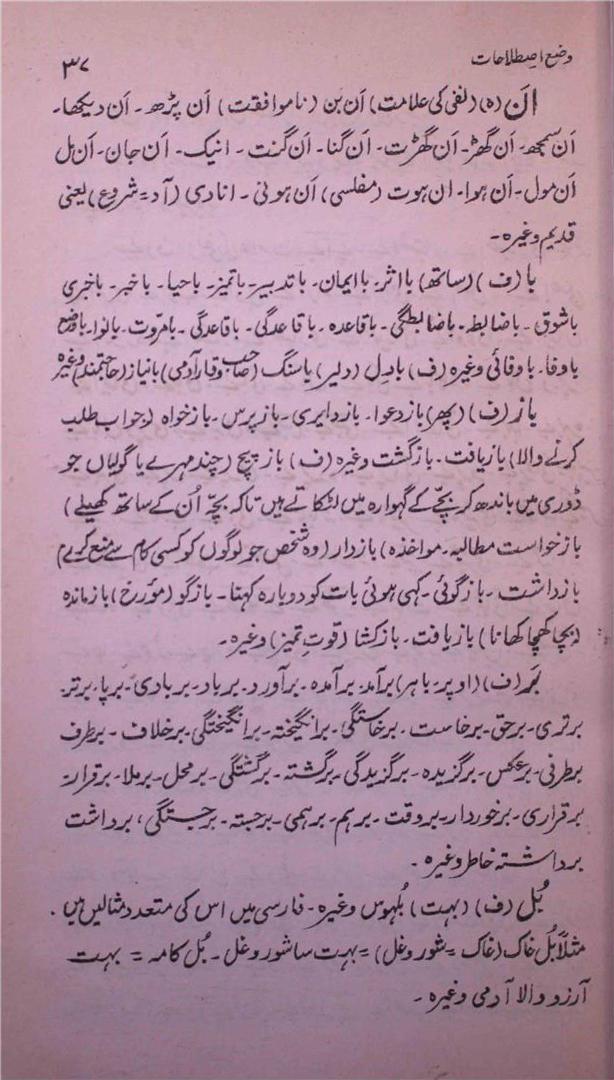 وضع اصطلاحات
۳۷
اَن (ہ) (نفی کی علامت) اَن بَن (ناموافقت) اَن پڑھ۔ اَن دیکھا۔
اَن سمجھ۔ اَن گھڑ۔ اَن گھڑت۔ اَن گنا۔ اَن گنت۔ انیک۔ اَن جان۔ اَن مل
اَن مول۔ اَن ہوا۔ ان ہوت (مفلسی) اَن ہونی۔ انادی (آد = شروع) یعنی
قدیم وغیرہ۔
با (ف) (ساتھ) با اثر۔ با ایمان۔ با تدبیر۔ باتمیز۔ باحیا۔ باخبر۔ باخبری
باشوق۔ باضابطہ۔ باضابطگی۔ باقاعدہ۔ باقاعدگی۔ باقاعدگی۔ بامروت۔ بانوا۔ باوضع
باوفا۔ باوفائی وغیرہ (ف) بادل (دلیر) باسنگ (صاحب وقار آدمی) بانیاز (حاجتمند) وغیرہ
باز (ف) (پھر) بازدعوا۔ بازدایری۔ بازپرس۔ بازخواہ (جواب طلب
کرنے والا) بازیافت۔ بازگشت وغیرہ (ف) باز پیچ (چند مہرے یا گولیاں جو
ڈوری میں باندھ کر بچّے کے گہوارہ میں لٹکاتے ہیں تاکہ بچّہ اُن کے ساتھ کھیلے)
بازخواست مطالبہ۔ مواخذہ) بازدار (وہ شخص جو لوگوں کو کسی کام سے منع کرے)
بازداشت۔ بازگوئی۔ کہی ہوئی بات کو دوبارہ کہنا۔ بازگو (مؤرخ) بازماندہ
(بچا کھچا کھانا) بازیافت۔ بازکشا (قوتِ تمیز) وغیرہ۔
بَر (ف) (اوپر۔ باہر) برآمد۔ برآمدہ۔ برآورد۔ برباد۔ بربادی۔ برپا۔ برتر۔
برتری۔ برحق۔ برخاست۔ برخاستگی۔ برانگیختہ۔ برانگیختگی۔ برخلاف۔ برطرف
برطرفی۔ برعکس۔ برگزیدہ۔ برگزیدگی۔ برگشتہ۔ برگشتگی۔ برمحل۔ برملا۔ برقرار۔
برقراری۔ برخوردار۔ بروقت۔ برہم۔ برہمی۔ برجستہ۔ برجستگی، برداشت
برداشتہ خاطر وغیرہ۔
بُل (ف) (بہت) بُلہوس وغیرہ۔ فارسی میں اس کی متعدد مثالیں ہیں۔
مثلاً بُل غاک (غاک = شور و غل) = بہت سا شور و غل۔ بُل کامہ = بہت
آرزو والا آدمی وغیرہ۔